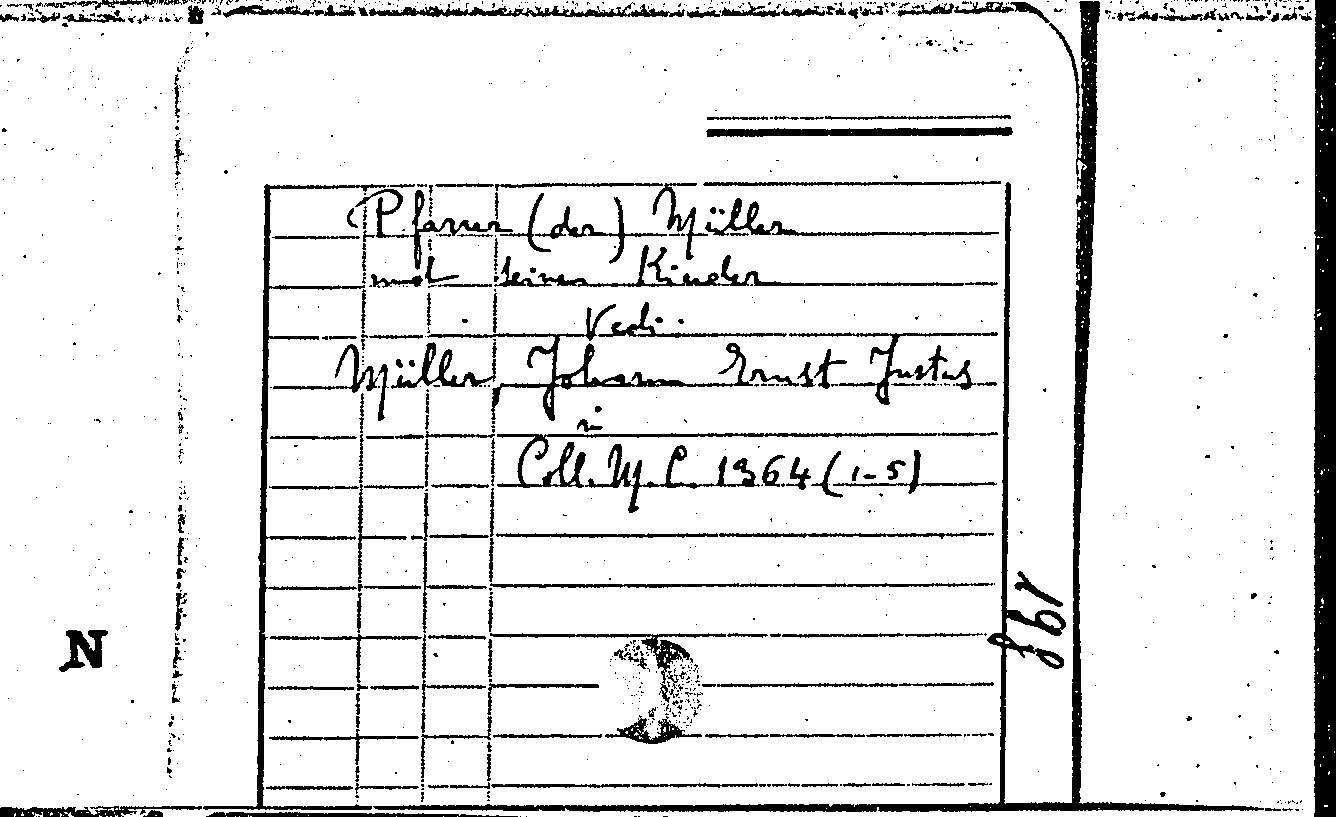 Pfarrer (der) Müller
mit seinen Kinder
Vedi:
Müller, Johann Ernst Justus
in
Coll. M. C. 1364 (1-5)
N